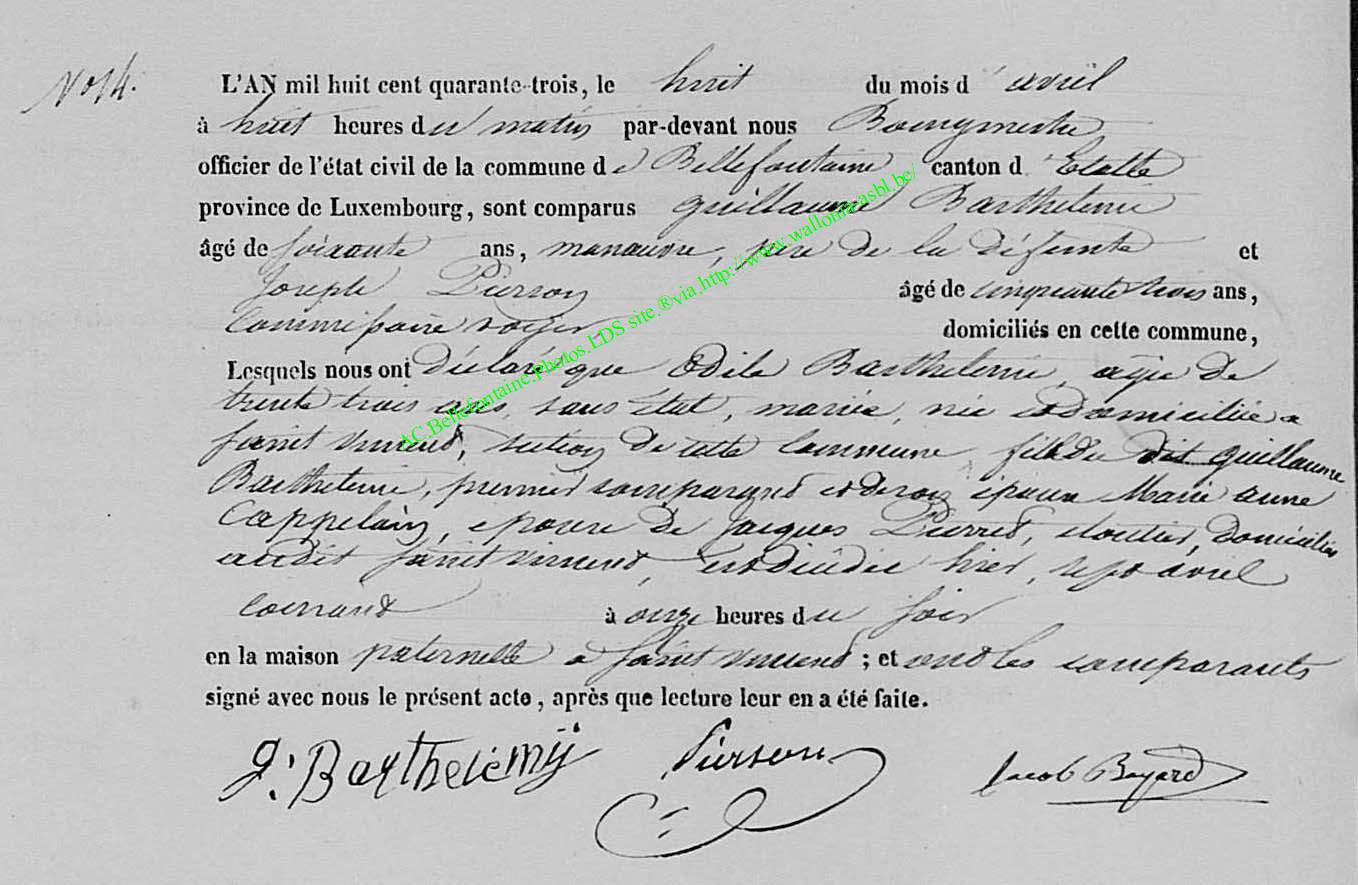 N° 14.
L'AN mil huit cent quarante-trois, le huit du mois d'avril
à huit heures du matin par-devant nous Bourgmestre
officier de l'état civil de la commune de Bellefontaine canton d'Etalle
province de Luxembourg, sont comparus guillaume Barthelemi
âgé de soixante ans, manœuvre, père de la défunte et
Joseph Pierson âgé de cinquante trois ans,
commissaire voyer domiciliés en cette commune,
Lesquels nous ont déclaré que Odile Barthelemi, agée de
trente trois ans, sans état, mariée, née et domiciliée a
saint vincent, section de cette commune, fille du dit guillaume
Barthelemi, premier comparant et de son épouse Marie anne
Cappelain, epouse de Jacques Pierret, cloutier, domicilié
audit saint vincent, est décédée hier, sept avril
courant à onze heures du soir
en la maison paternelle a saint vincent ; et ont les comparants
signé avec nous le présent acte, après que lecture leur en a été faite.
g. Barthelémÿ Pierson Jacob Bayard
AC.Bellefontaine.Photos.LDS site.®via.http://www.wallonia-asbl.be/